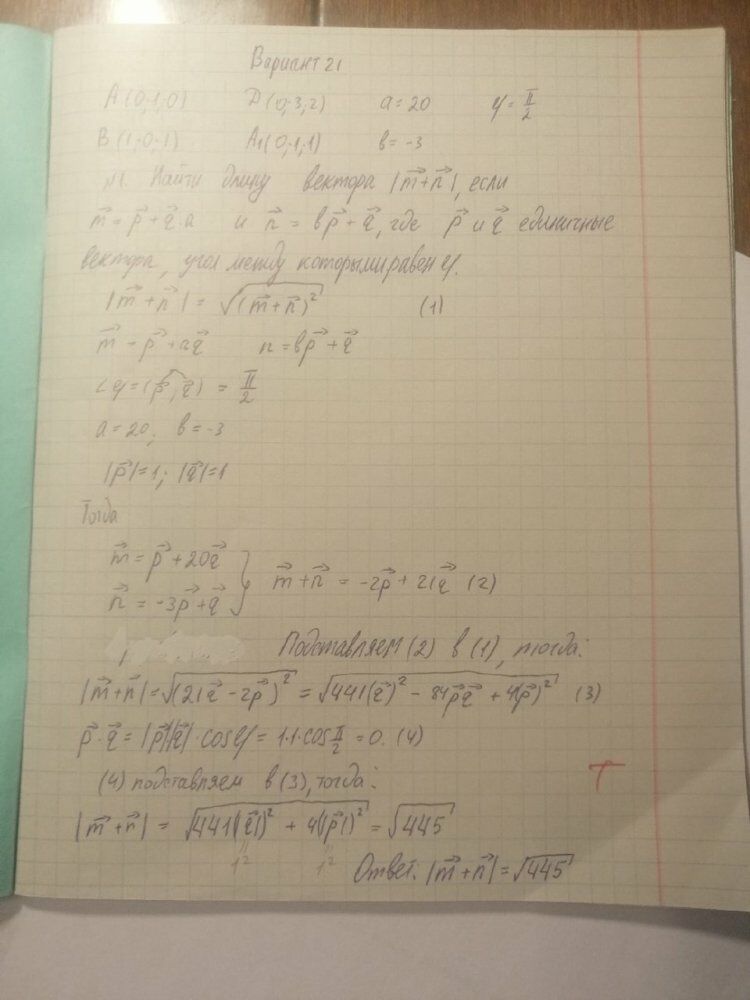 Вариант 21
A (0;1;0) D (0;3;2) a = 20 φ = π/2
B (1;0;1) A₁(0;1;1) в = -3
№1. Найти длину вектора |m⃗+n⃗|, если
m⃗ = p⃗ + q⃗·a и n⃗ = вp⃗ + q⃗, где p⃗ и q⃗ единичные
вектора, угол между которыми равен φ.
|m⃗ + n⃗| = √(m⃗ + n⃗)² (1)
m⃗ = p⃗ + aq⃗ n = вp⃗ + q⃗
∠φ = (p⃗, q⃗) = π/2
a = 20; в = -3
|p⃗| = 1; |q⃗| = 1
Тогда
m⃗ = p⃗ + 20q⃗
n⃗ = -3p⃗ + q⃗ } m⃗ + n⃗ = -2p⃗ + 21q⃗ (2)
Подставляем (2) в (1), тогда:
|m⃗ + n⃗| = √(21q⃗ - 2p⃗)² = √441(q⃗)² - 84p⃗q⃗ + 4(p⃗)² (3)
p⃗ · q⃗ = |p⃗||q⃗| · cos φ = 1·1·cos π/2 = 0. (4)
(4) подставляем в (3), тогда:
|m⃗ + n⃗| = √441(|q⃗|)² + 4(|p⃗|)² = √445
1² 1²
Ответ: |m⃗ + n⃗| = √445